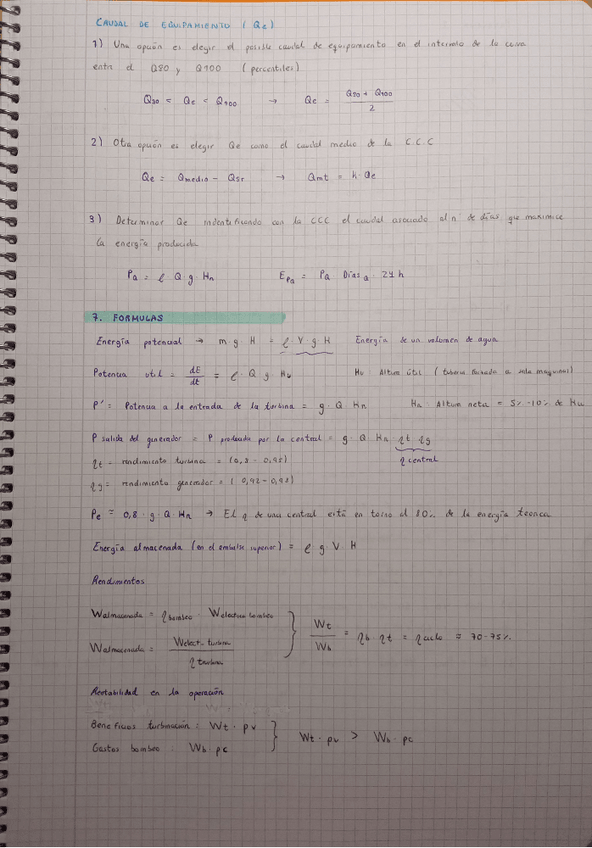 CAUDAL DE EQUIPAMIENTO (Qe)
1) Una opción es elegir el posible caudal de equipamiento en el intervalo de la curva
entre el Q80 y Q100 (percentiles)
Q80 < Qe < Q100 → Qe = (Q80 + Q100) / 2
2) Otra opción es elegir Qe como el caudal medio de la C.C.C
Qe = Qmedio - Qsr → Qmt = h · Qe
3) Determinar Qe indentificando con la CCC el caudal asociado al nº de días que maximice
la energía producida
PQ = ρ Q g Hn EPQ = PQ DíasQ 24 h
7. FORMULAS
Energía potencial → m g H = ρ V g H Energía de un volumen de agua
Potencia util = dE/dt = ρ · Q g Hu Hu: Altura útil
P' = Potencia a la entrada de la turbina = g · Q Hn Hn: Altura neta = 5% - 10% de Hu
P salida del generador = P producida por la central = g · Q Hn ηt ηg
η central
ηt = rendimiento turbina = (0,8 - 0,95)
ηg = rendimiento generador = (0,92 - 0,98)
Pe = 0,8 · g · Q · Hn → El η de una central está en torno al 80% de la energía teorica
Energía almacenada (en el embalse superior) = ρ g · V · H
Rendimientos
Walmacenada = η bombeo · Welectrica bombeo
Walmacenada = Welect. turbina / η turbina
Wt / Wb = ηb ηt = η ciclo = 70-75%
Rentabilidad en la operación
Beneficios turbinación: Wt · pv
Gastos bombeo: Wb · pc
Wt · pv > Wb · pc